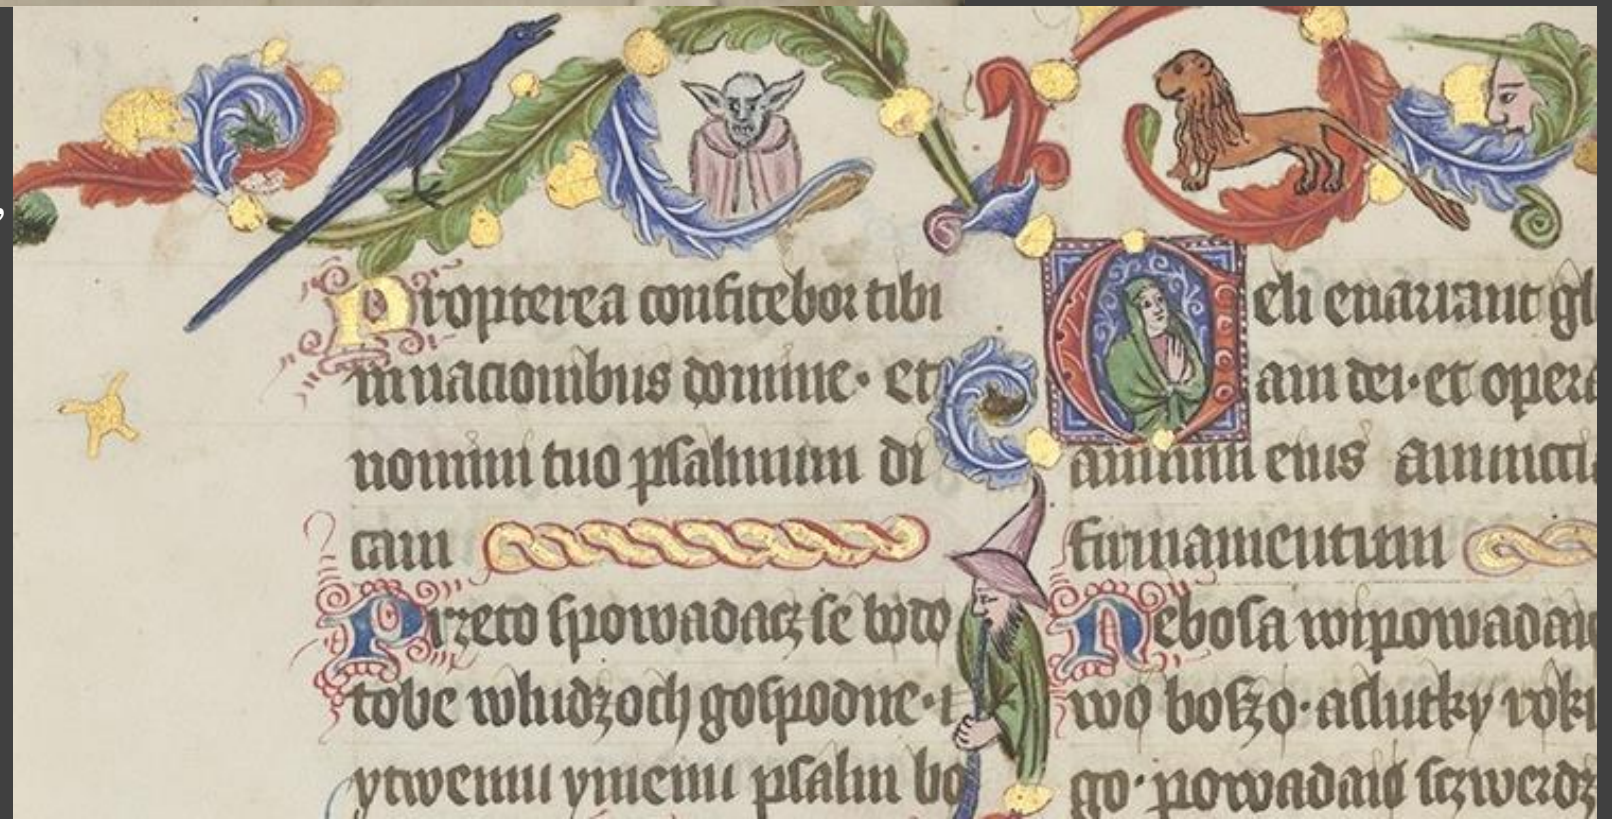 Propterea confitebor tibi
in nacionibus domine· et
nomini tuo psalmum di
cam
Przeto spowadacz se bodo
tobe wludzoch gospodne· i
ytwemu ymenu psalm bo
Celi enarrant gl
am dei· et opera
manuum eius annuncia
firmamentum
Nebosa wipowadaio
wo boszo· a skutky roku
go· powadaio sczwerdz